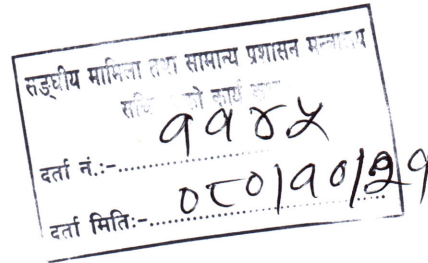 सङ्घीय मामिला तथा सामान्य प्रशासन मन्त्रालय
को कार्य
दर्ता नं.:- ११४५
दर्ता मिति:- ०८०|१०|२१